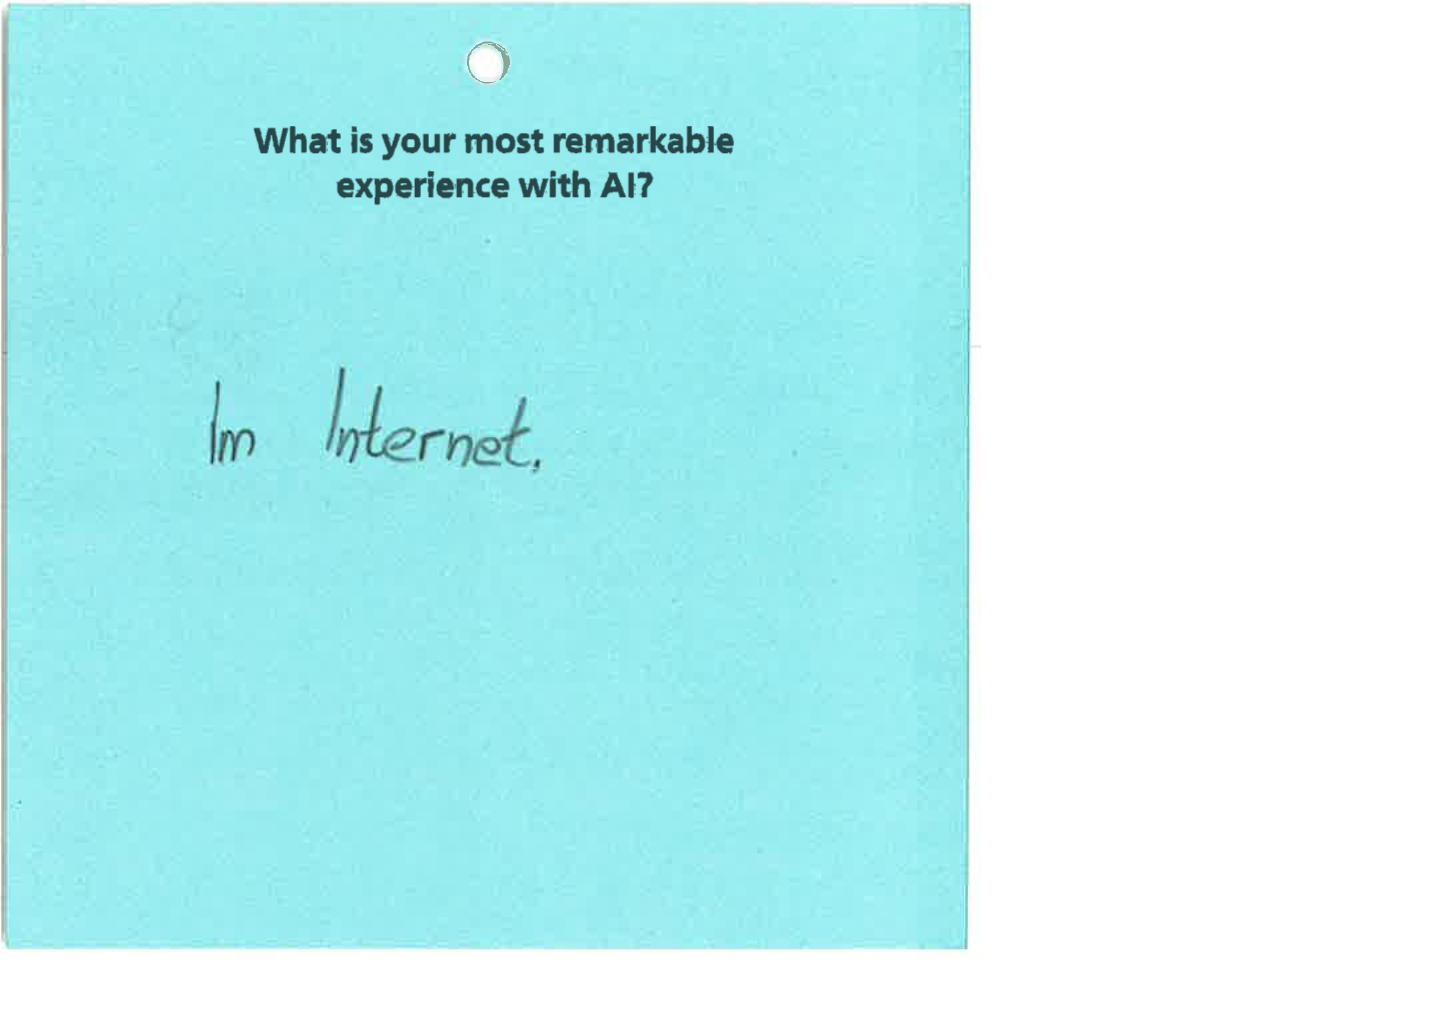 What is your most remarkable
experience with AI?
Im Internet.